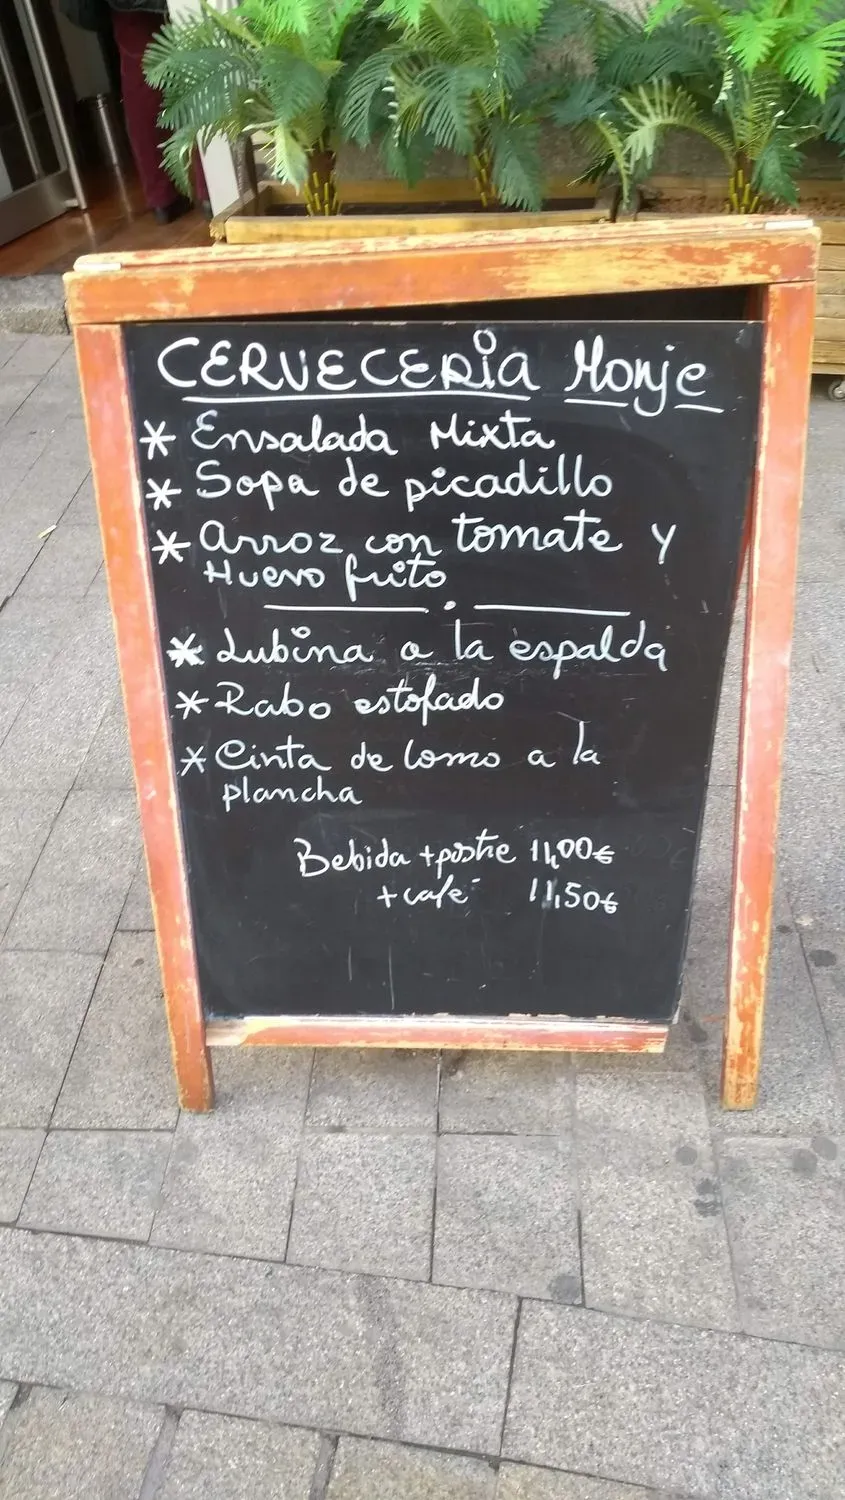 CERVECERIA Monje
* Ensalada Mixta
* Sopa de picadillo
* arroz con tomate y
Huevo frito
* Lubina a la espalda
* Rabo estofado
* Cinta de lomo a la
plancha
Bebida + postre 11,00€
+ café 11,50€